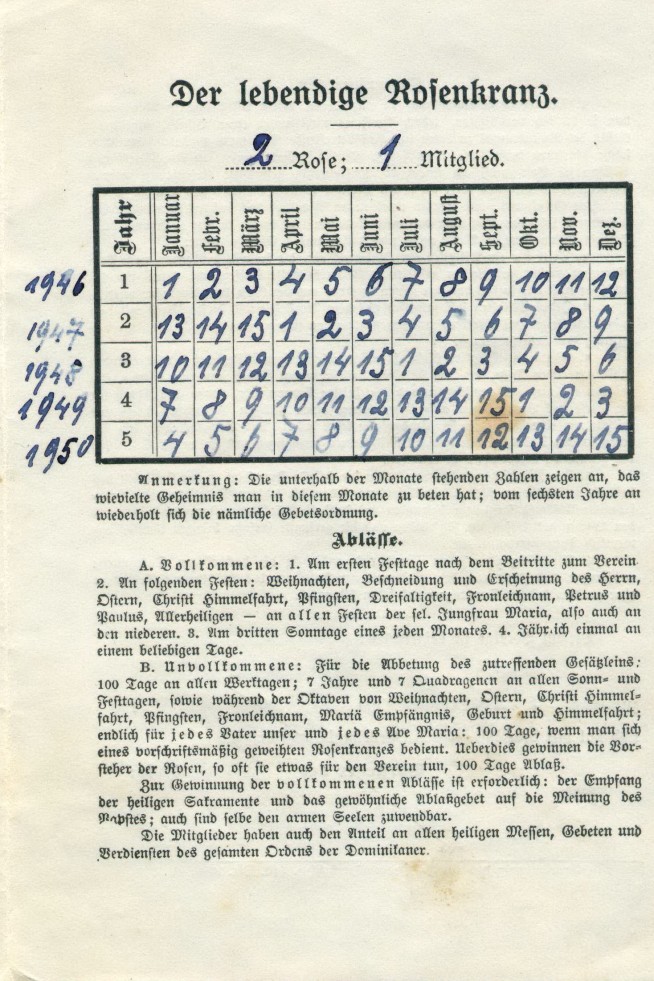 Der lebendige Rosenkranz.
2 Rose; 1 Mitglied.
Jahr Januar Febr. März April Mai Juni Juli August Sept. Okt. Nov. Dez.
1946 1 1 2 3 4 5 6 7 8 9 10 11 12
1947 2 13 14 15 1 2 3 4 5 6 7 8 9
1948 3 10 11 12 13 14 15 1 2 3 4 5 6
1949 4 7 8 9 10 11 12 13 14 15 1 2 3
1950 5 4 5 6 7 8 9 10 11 12 13 14 15
Anmerkung: Die unterhalb der Monate stehenden Zahlen zeigen an, das
wievielte Geheimnis man in diesem Monate zu beten hat; vom sechsten Jahre an
wiederholt sich die nämliche Gebetsordnung.
Ablässe.
A. Vollkommene: 1. Am ersten Festtage nach dem Beitritte zum Verein
2. An folgenden Festen: Weihnachten, Beschneidung und Erscheinung des Herrn,
Ostern, Christi Himmelfahrt, Pfingsten, Dreifaltigkeit, Fronleichnam, Petrus und
Paulus, Allerheiligen — an allen Festen der sel. Jungfrau Maria, also auch an
den niederen. 3. Am dritten Sonntage eines jeden Monates. 4. Jährlich einmal an
einem beliebigen Tage.
B. Unvollkommene: Für die Abbetung des zutreffenden Gesätzleins:
100 Tage an allen Werktagen; 7 Jahre und 7 Quadragenen an allen Sonn- und
Festtagen, sowie während der Oktaven von Weihnachten, Ostern, Christi Himmel-
fahrt, Pfingsten, Fronleichnam, Mariä Empfängnis, Geburt und Himmelfahrt;
endlich für jedes Vater unser und jedes Ave Maria: 100 Tage, wenn man sich
eines vorschriftsmäßig geweihten Rosenkranzes bedient. Ueberdies gewinnen die Vor-
steher der Rosen, so oft sie etwas für den Verein tun, 100 Tage Ablaß.
Zur Gewinnung der vollkommenen Ablässe ist erforderlich: der Empfang
der heiligen Sakramente und das gewöhnliche Ablaßgebet auf die Meinung des
Papstes; auch sind selbe den armen Seelen zuwendbar.
Die Mitglieder haben auch den Anteil an allen heiligen Messen, Gebeten und
Verdiensten des gesamten Ordens der Dominikaner.